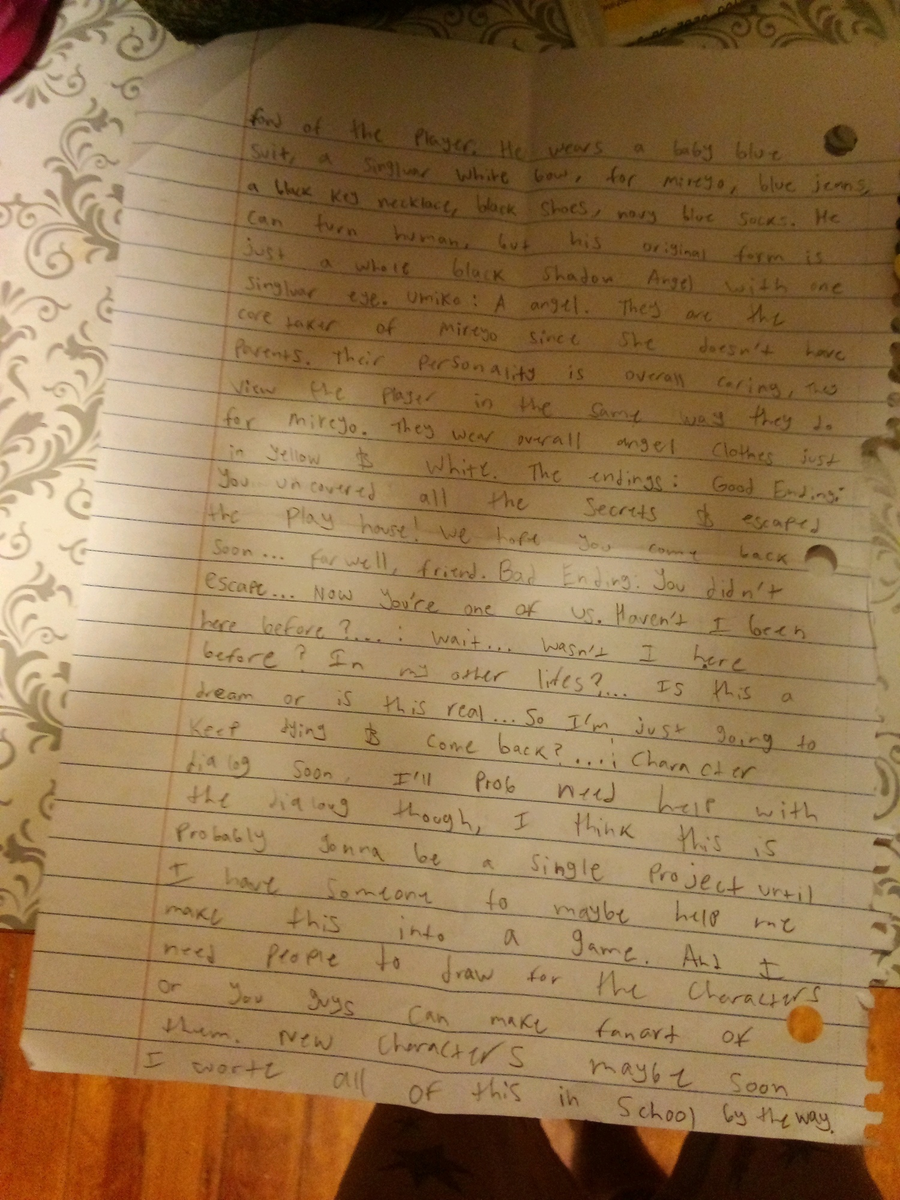 fond of the Player. He wears a baby blue
suit, a singluar white bow, for mireyo, blue jeans,
a black key necklace, black shoes, navy blue socks. He
can turn human, but his original form is
just a whole black shadow Angel with one
singluar eye. Umiko: A angel. They are the
care taker of mireyo since she doesn't have
Parents. Their personality is overall caring, they
View the player in the same way they do
for mireyo. They wear overall angel clothes just
in yellow $ white. The endings: Good Ending:
You uncovered all the secrets $ escaped
the Play house! We hope you come back
soon... farwell, friend. Bad Ending: You didn't
escape... Now you're one of us. Haven't I been
here before?...: wait... wasn't I here
before? In my other lifes?... Is this a
dream or is this real... So I'm just going to
keep dying $ come back?...: Character
dialog soon, I'll prob need help with
the dialoug though, I think this is
Probably gonna be a single project until
I have someone to maybe help me
make this into a game. And I
need people to draw for the characters
or you guys can make fanart of
them. New characters maybe soon
I worte all of this in School by the way.